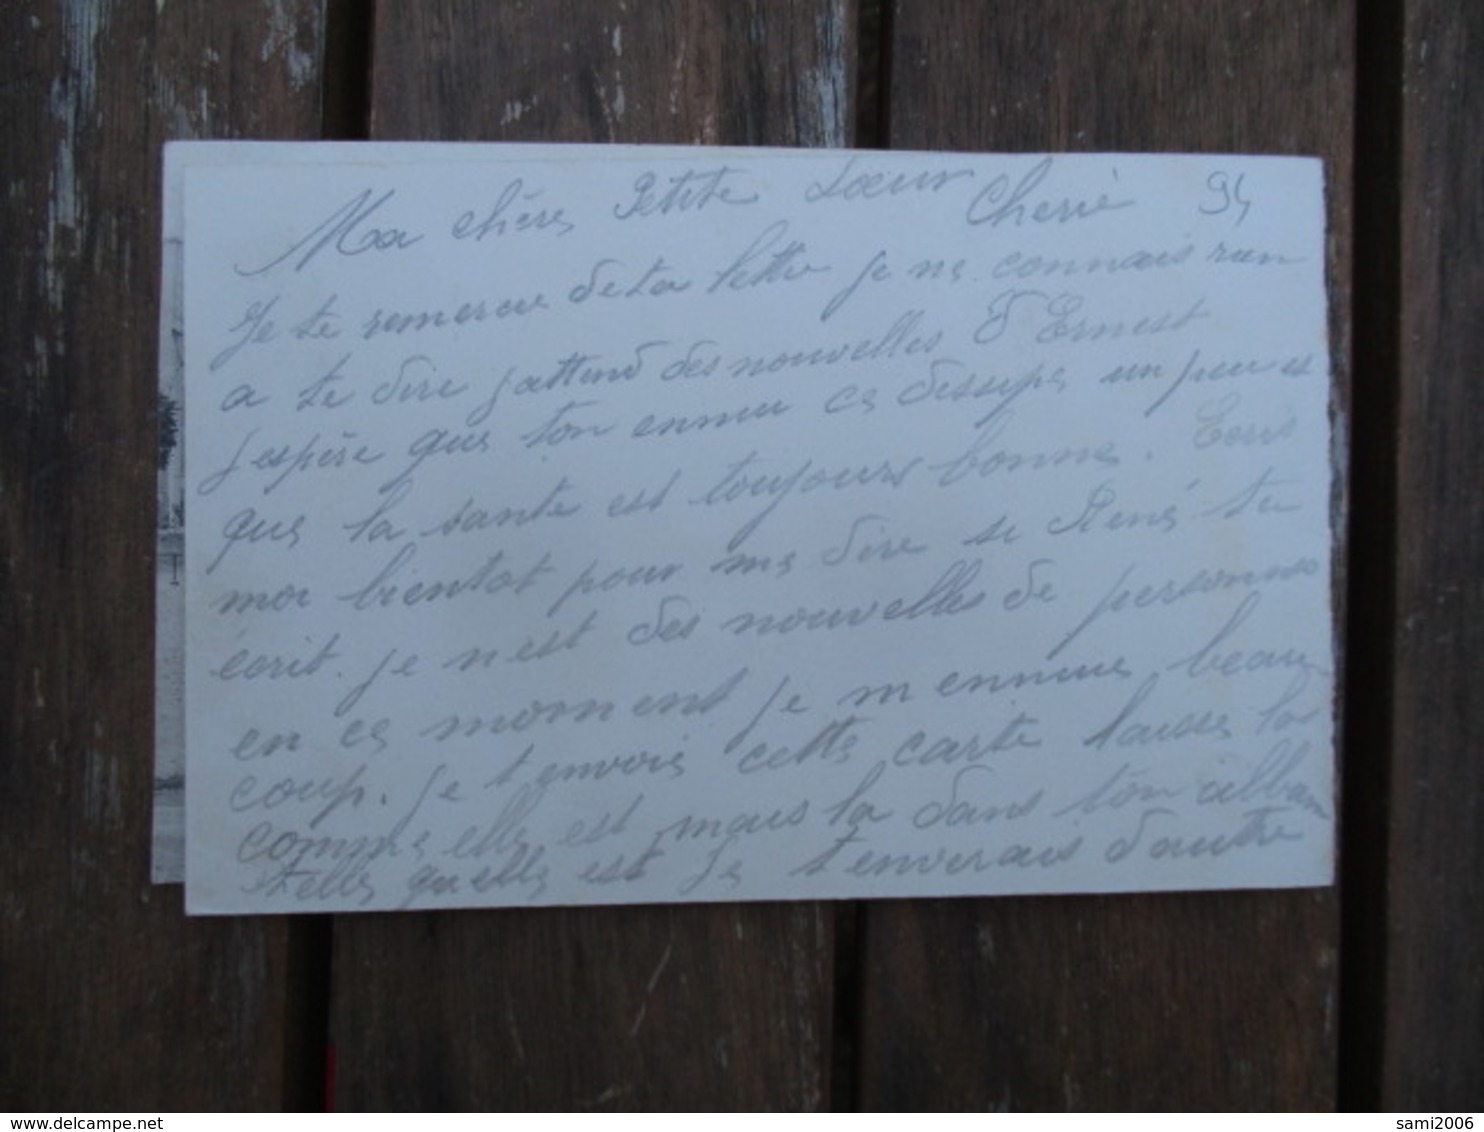 Ma chère Petite Sœur Cherie 94
Je te remercie de ta lettre je ne connais rien
a te dire j attend des nouvelles d Ernest
j espère que ton ennui ce dessipe un peu et
que la sante est toujours bonne. Ecris
moi bientot pour me dire si René tu
écrit. je n est des nouvelles de personnes
en ce moment je m ennuie beau
coup. je t envoie cette carte laisse la
comme elle est mais la dans ton album
telle quelle est je t enverais dautre
sami2006
delcampe.net